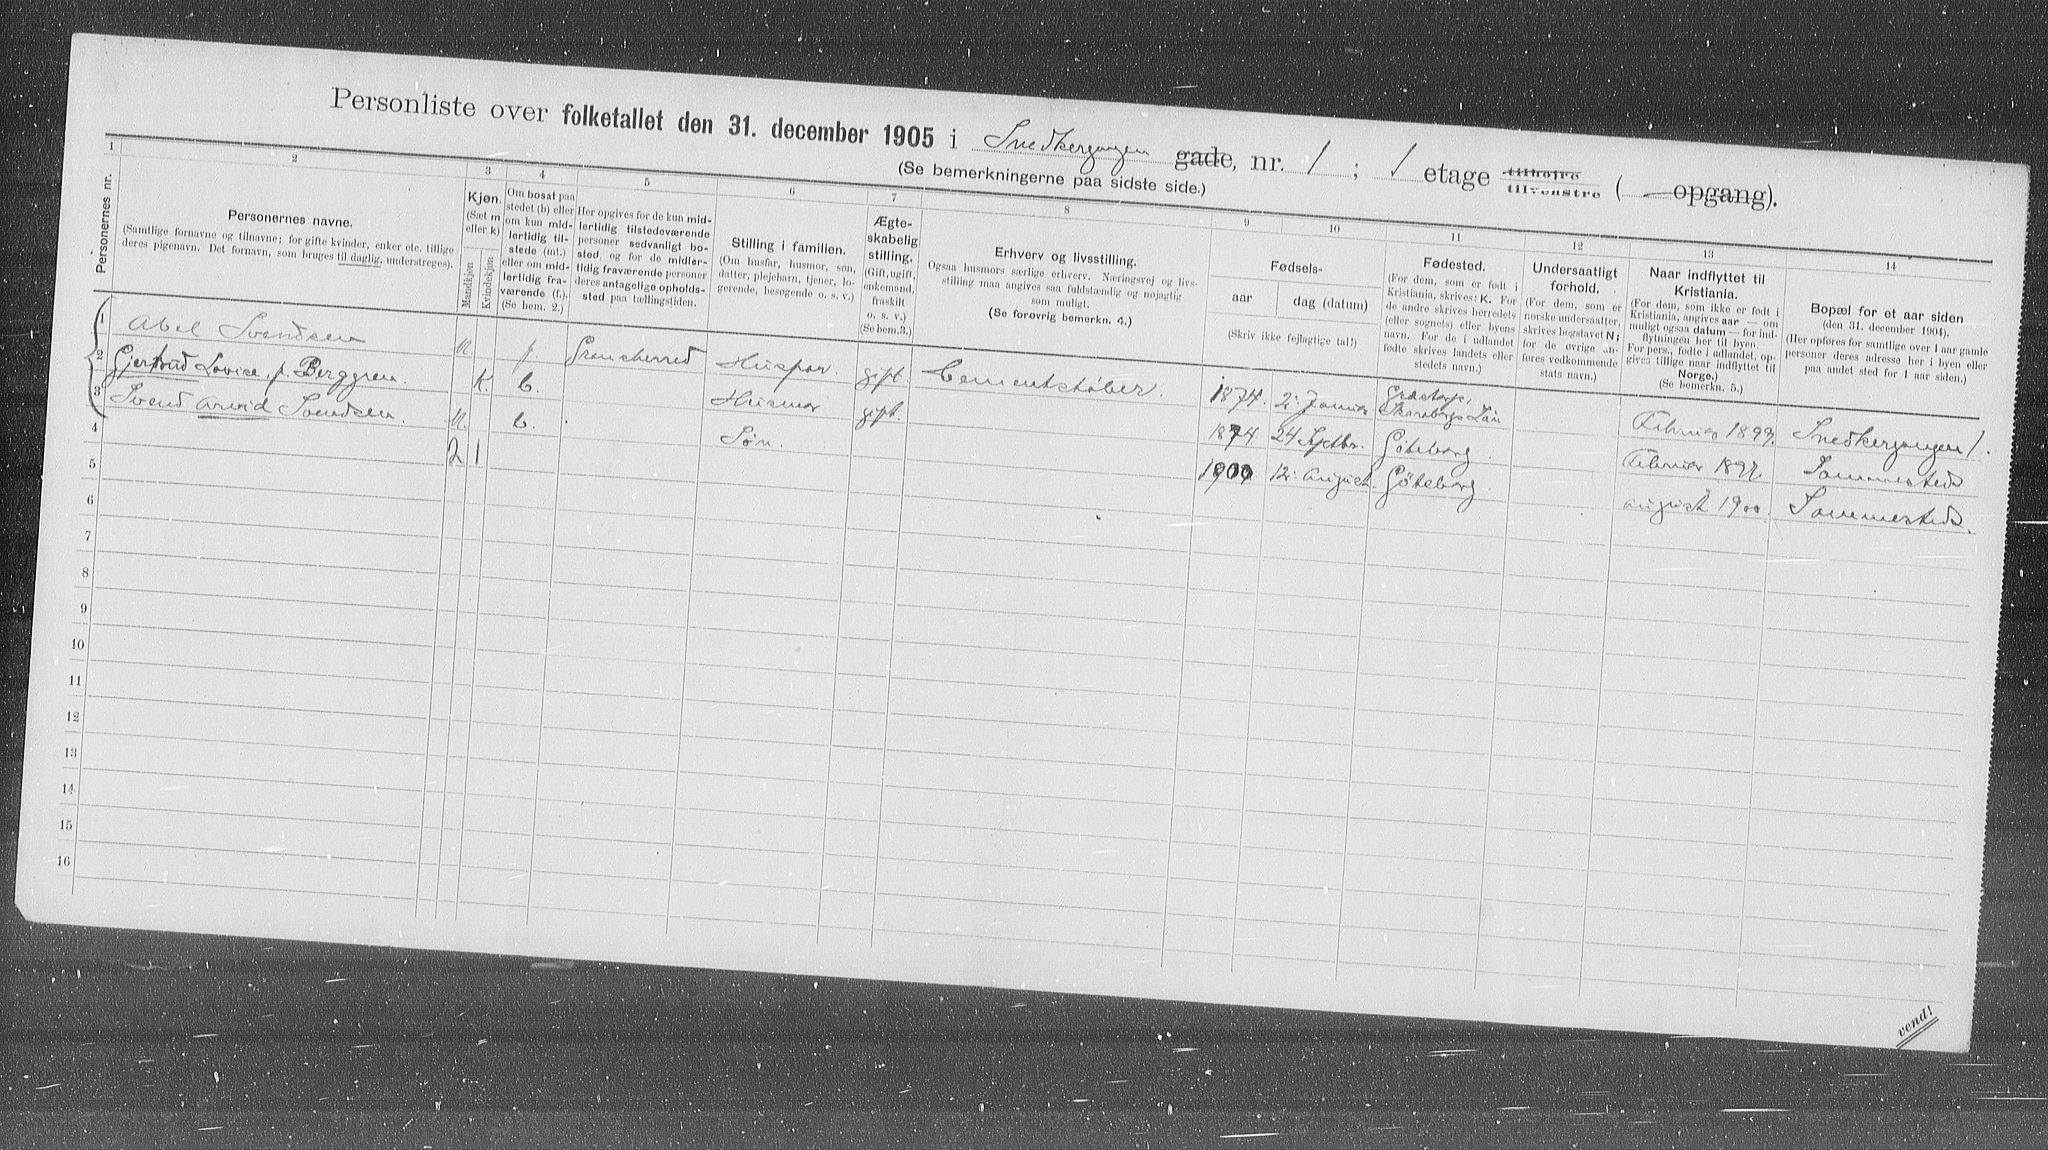 Personliste over folketallet den 31. december 1905 i Snedkergangen gade, nr. 1 ; 1 etage tilhøjre tilvenstre ( — opgang).
(Se bemerkningerne paa sidste side.)
1 2 3 4 5 6 7 8 9 10 11 12 13 14
Personernes nr.
Personernes navne.
(Samtlige fornavne og tilnavne; for gifte kvinder, enker etc. tillige
deres pigenavn. Det fornavn, som bruges til daglig, understreges).
Kjøn.
(Sæt m
eller k)
Mandkjøn
Kvindekjøn
Om bosat paa
stedet (b) eller
om kun mid-
lertidig til-
stede (mt.)
eller om mid-
lertidig fra-
værende (f.).
(Se bem. 2.)
Her opgives for de kun mid-
lertidig tilstedeværende
personer sedvanligt bo-
sted, og for de midler-
tidig fraværende personer
deres antagelige opholds-
sted paa tællingstiden.
Stilling i familien.
(Om husfar, husmor, søn,
datter, plejebarn, tjener, lo-
gerende, besøgende o. s. v.)
Ægte-
skabelig
stilling.
(Gift, ugift,
enkemand,
fraskilt
o. s. v.)
(Se bem.3.)
Erhverv og livsstilling.
Ogsaa husmors særlige erhverv. Næringsvej og livs-
stilling maa angives saa fuldstændig og nøjagtig
som muligt.
(Se forøvrig bemerkn. 4.)
Fødsels-
aar
dag (datum)
(Skriv ikke fejlagtige tal!)
Fødested.
(For dem, som er født i
Kristiania, skrives: K. For
de andre skrives herredets
(eller sognets) eller byens
navn. For de i udlandet
fødte skrives landets eller
stedets navn.)
Undersaatligt
forhold.
(For dem, som er
norske undersaatter,
skrives bogstavet N;
for de øvrige an-
føres vedkommende
stats navn.)
Naar indflyttet til
Kristiania.
(For dem, som ikke er født i
Kristiania, angives aar — om
muligt ogsaa datum — for ind-
flytningen her til byen.
For pers., fødte i udlandet, op-
gives tillige naar indflyttet til
Norge.)
(Se bemerkn. 5.)
Bopæl for et aar siden
(den 31. december 1904).
(Her opføres for samtlige over 1 aar gamle
personer deres adresse her i byen eller
paa andet sted for 1 aar siden.)
1 Abel Svendsen m f. Gransherred Huspar gift Cementstøber. 1874. 2: Januar Grästorp, Skaraborgs Län Februar 1899. Snedkergangen 1.
2 Gjertrud Lovise, f. Berggren. K. b. Husmor gift. 1874 24 Septbr. Göteborg. Februar 1899. Sammesteds
3 Svend Arvid Svendsen. m. b. Søn. 1900 12: august. Göteborg. august 1900. Sammesteds.
4 2 1
5
6
7
8
9
10
11
12
13
14
15
16
vend!